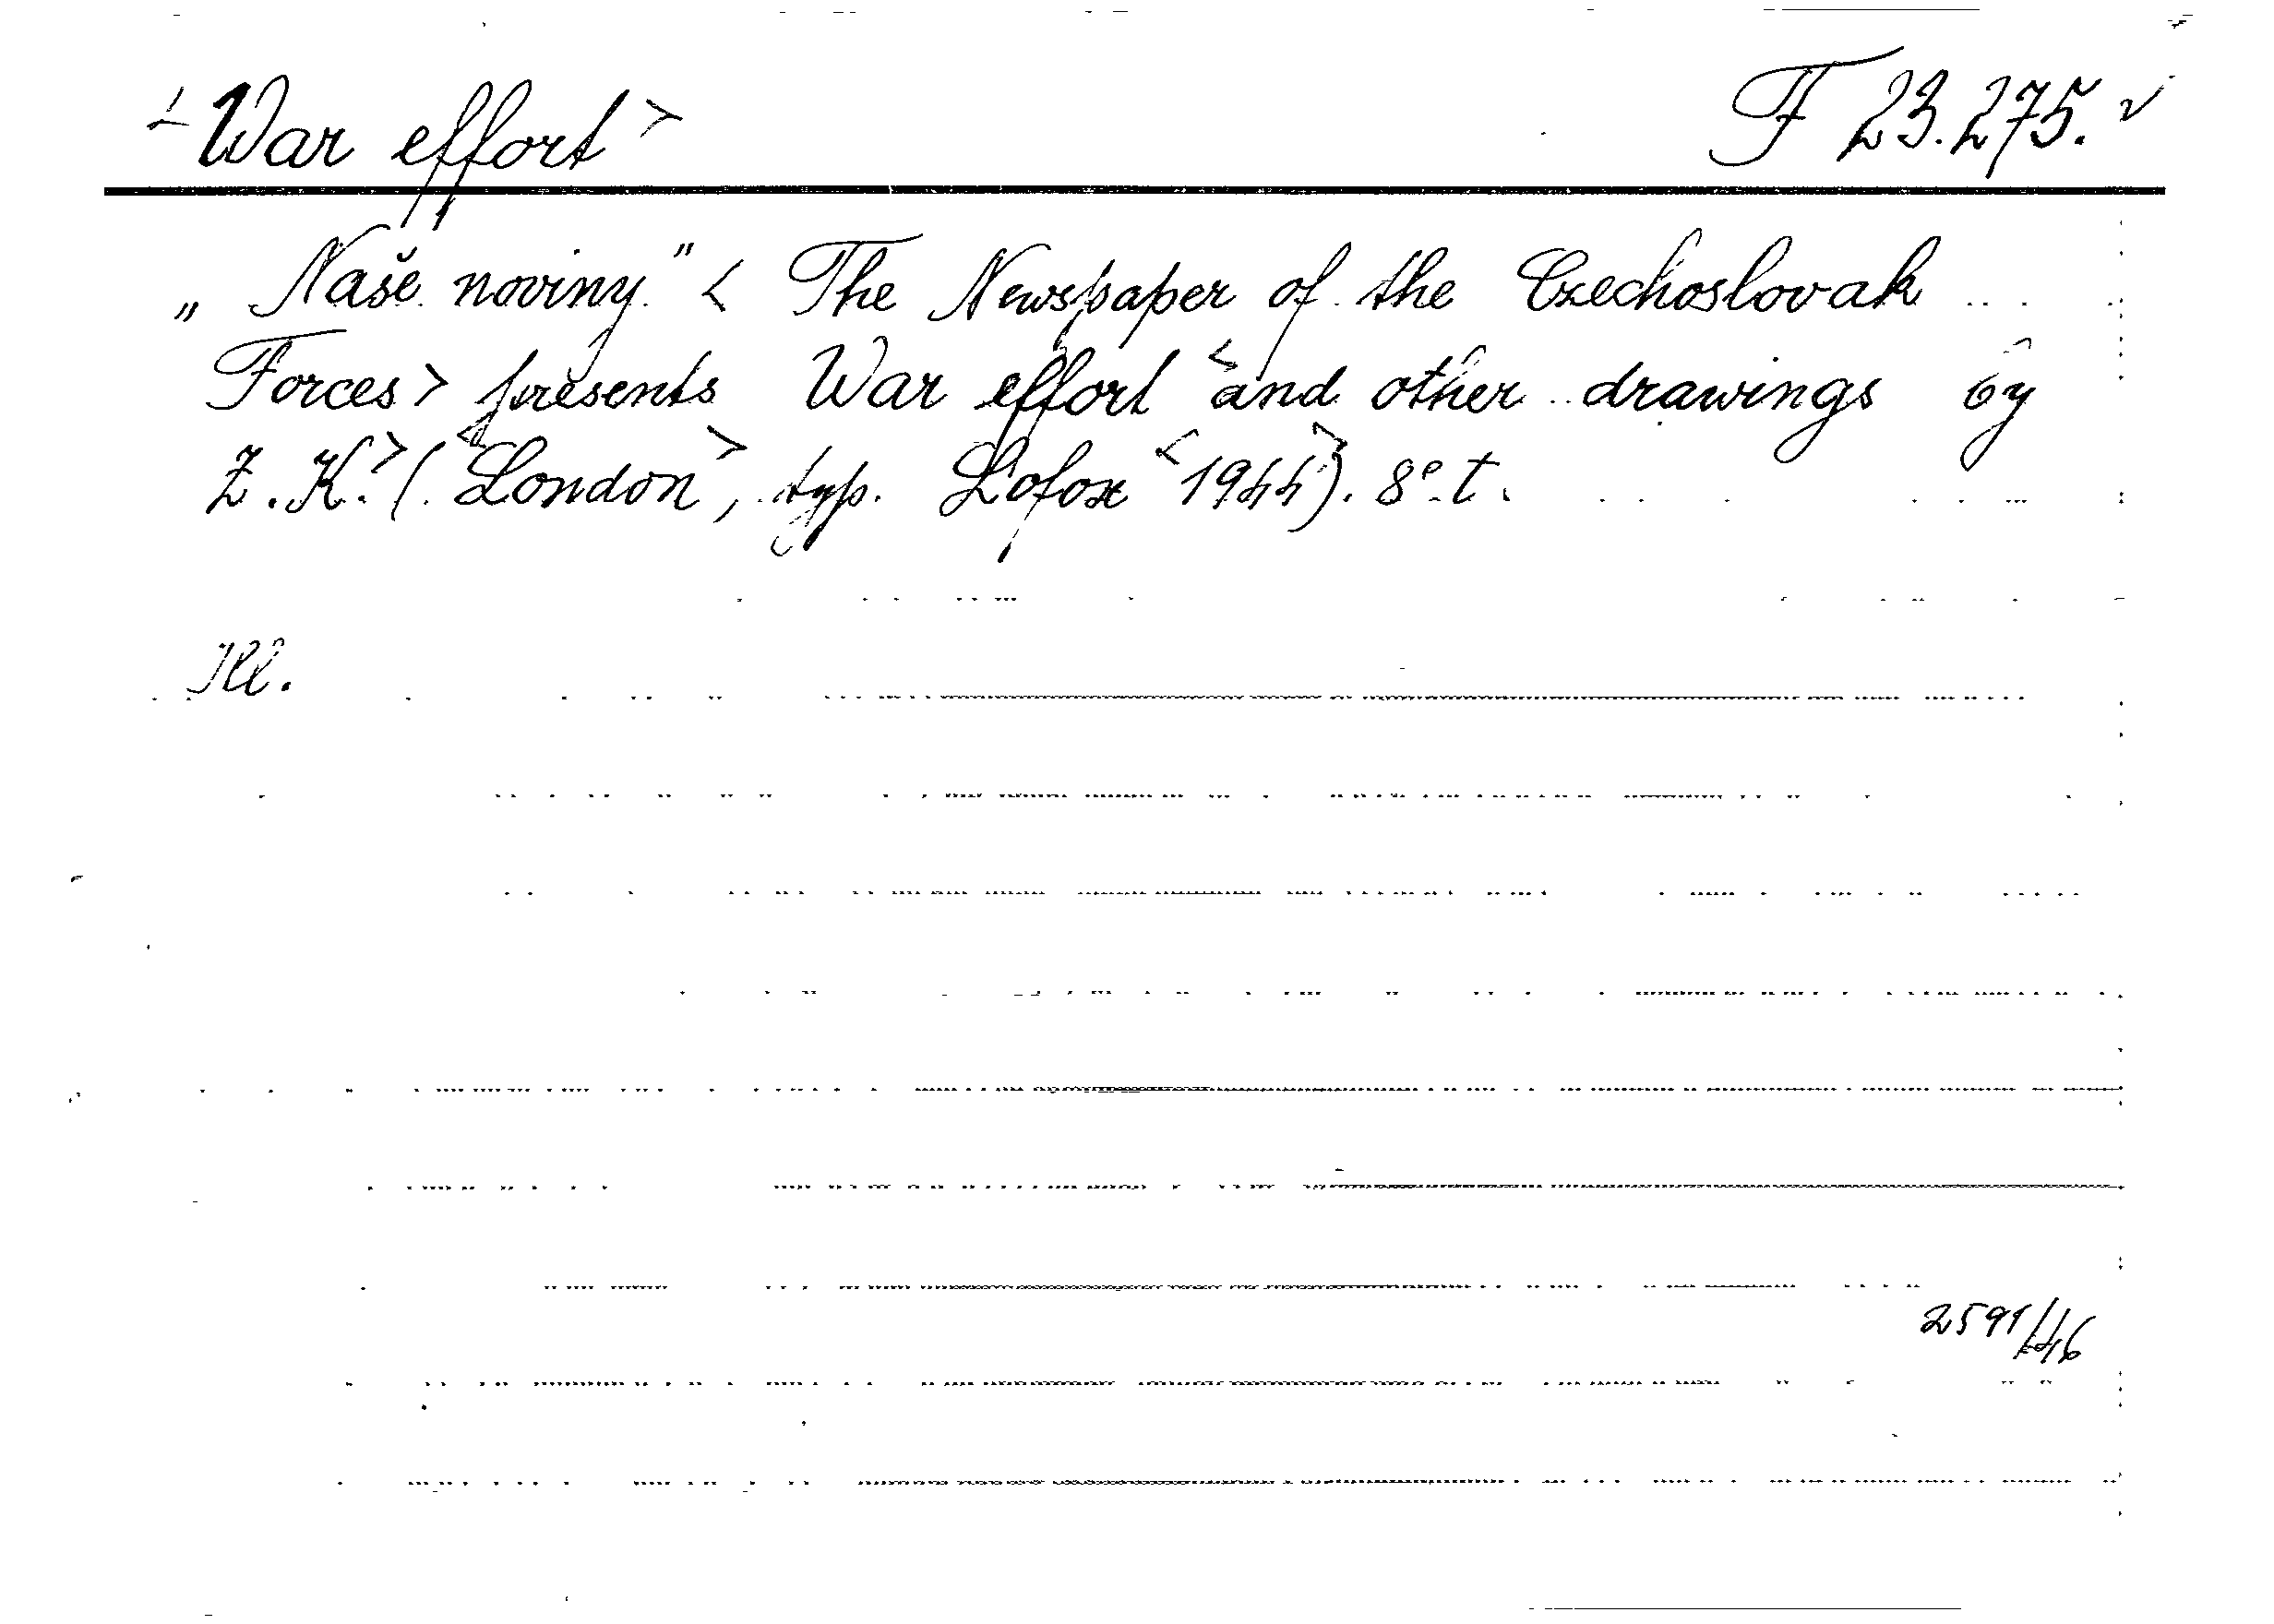 <War effort> F 23.275. ✓
„Naše noviny." < The Newspaper of the Czechoslovak
Forces> presents War effort <and other drawings by
Z. K.> (<London>, typ. Lofox <1944>). 8° t.
Ill.
2591/46